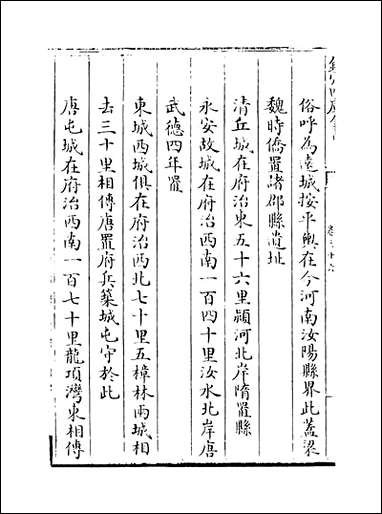 俗呼為遠城按平輿在今河南汝陽縣界此蓋梁
魏時僑置諸郡縣遺址
清丘城在府治東五十六里潁河北岸隋置縣
永安故城在府治西南一百四十里汝水北岸唐
武德四年置
東城西城俱在府治西北七十里五樟林兩城相
去三十里相傳唐置府兵築城屯守於此
唐屯城在府治西南一百七十里龍項灣東相傳